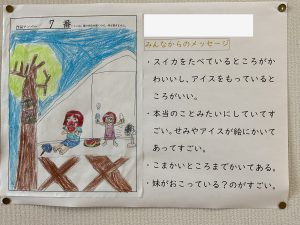 7番
みんなからのメッセージ
・スイカをたべているところがか
わいいし、アイスをもっている
ところがいい。
・本当のことみたいにしていてす
ごい。せみやアイスが絵にかいて
あってすごい。
・こまかいところまでかいてある。
・妹がおこっている？のがすごい。